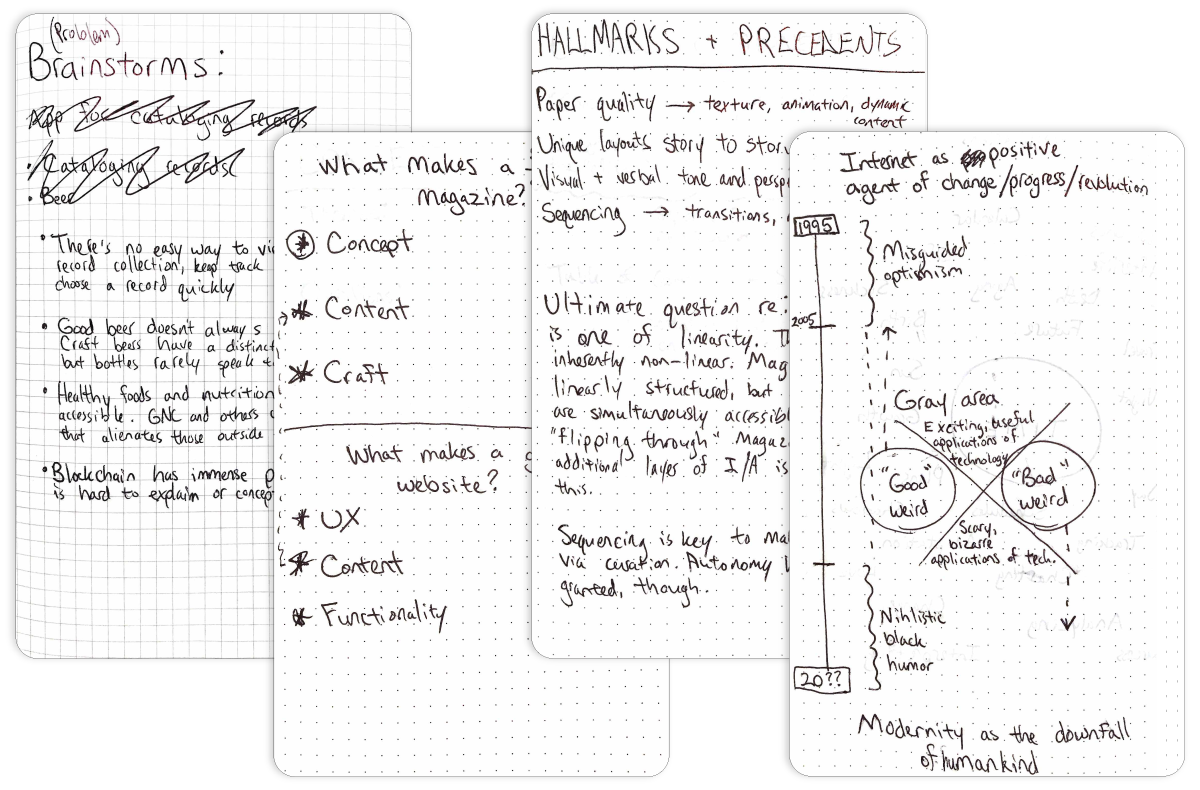 (Problem)
Brainstorms:
App for cataloging records
• Cataloging records
• Beer
• There's no easy way to
record collection, keep track
choose a record quickly
• Good beer doesn't always
Craft beers have a distinct
but bottles rarely speak
• Healthy foods and nutrition
accessible. GNC and others
that alienates those outside
• Blockchain has immense
is hard to explain or concep
What makes a
magazine?
* Concept
* Content
* Craft
What makes a g
website?
* UX
* Content
* Functionality
HALLMARKS + PRECEDENTS
Paper quality → texture, animation, dynamic
content
Unique layouts story to story
Visual + verbal tone and persp
Sequencing → transitions,
Ultimate question re:
is one of linearity. T
inherently non-linear. Mag
linearly structured, but
are simultaneously accessibl
"flipping through" Magaz
additional layer of I/A is
this.
Sequencing is key to ma
via curation. Autonomy
granted, though..
Internet as positive
agent of change/progress/revolution
1995
Misguided
optimism
2005
Gray area
Exciting, useful
applications of
technology
"Good"
weird
"Bad"
weird
Scary,
bizarre
applications of tech.
Nihlistic
black
humor
20??
Modernity as the downfall
of humankind